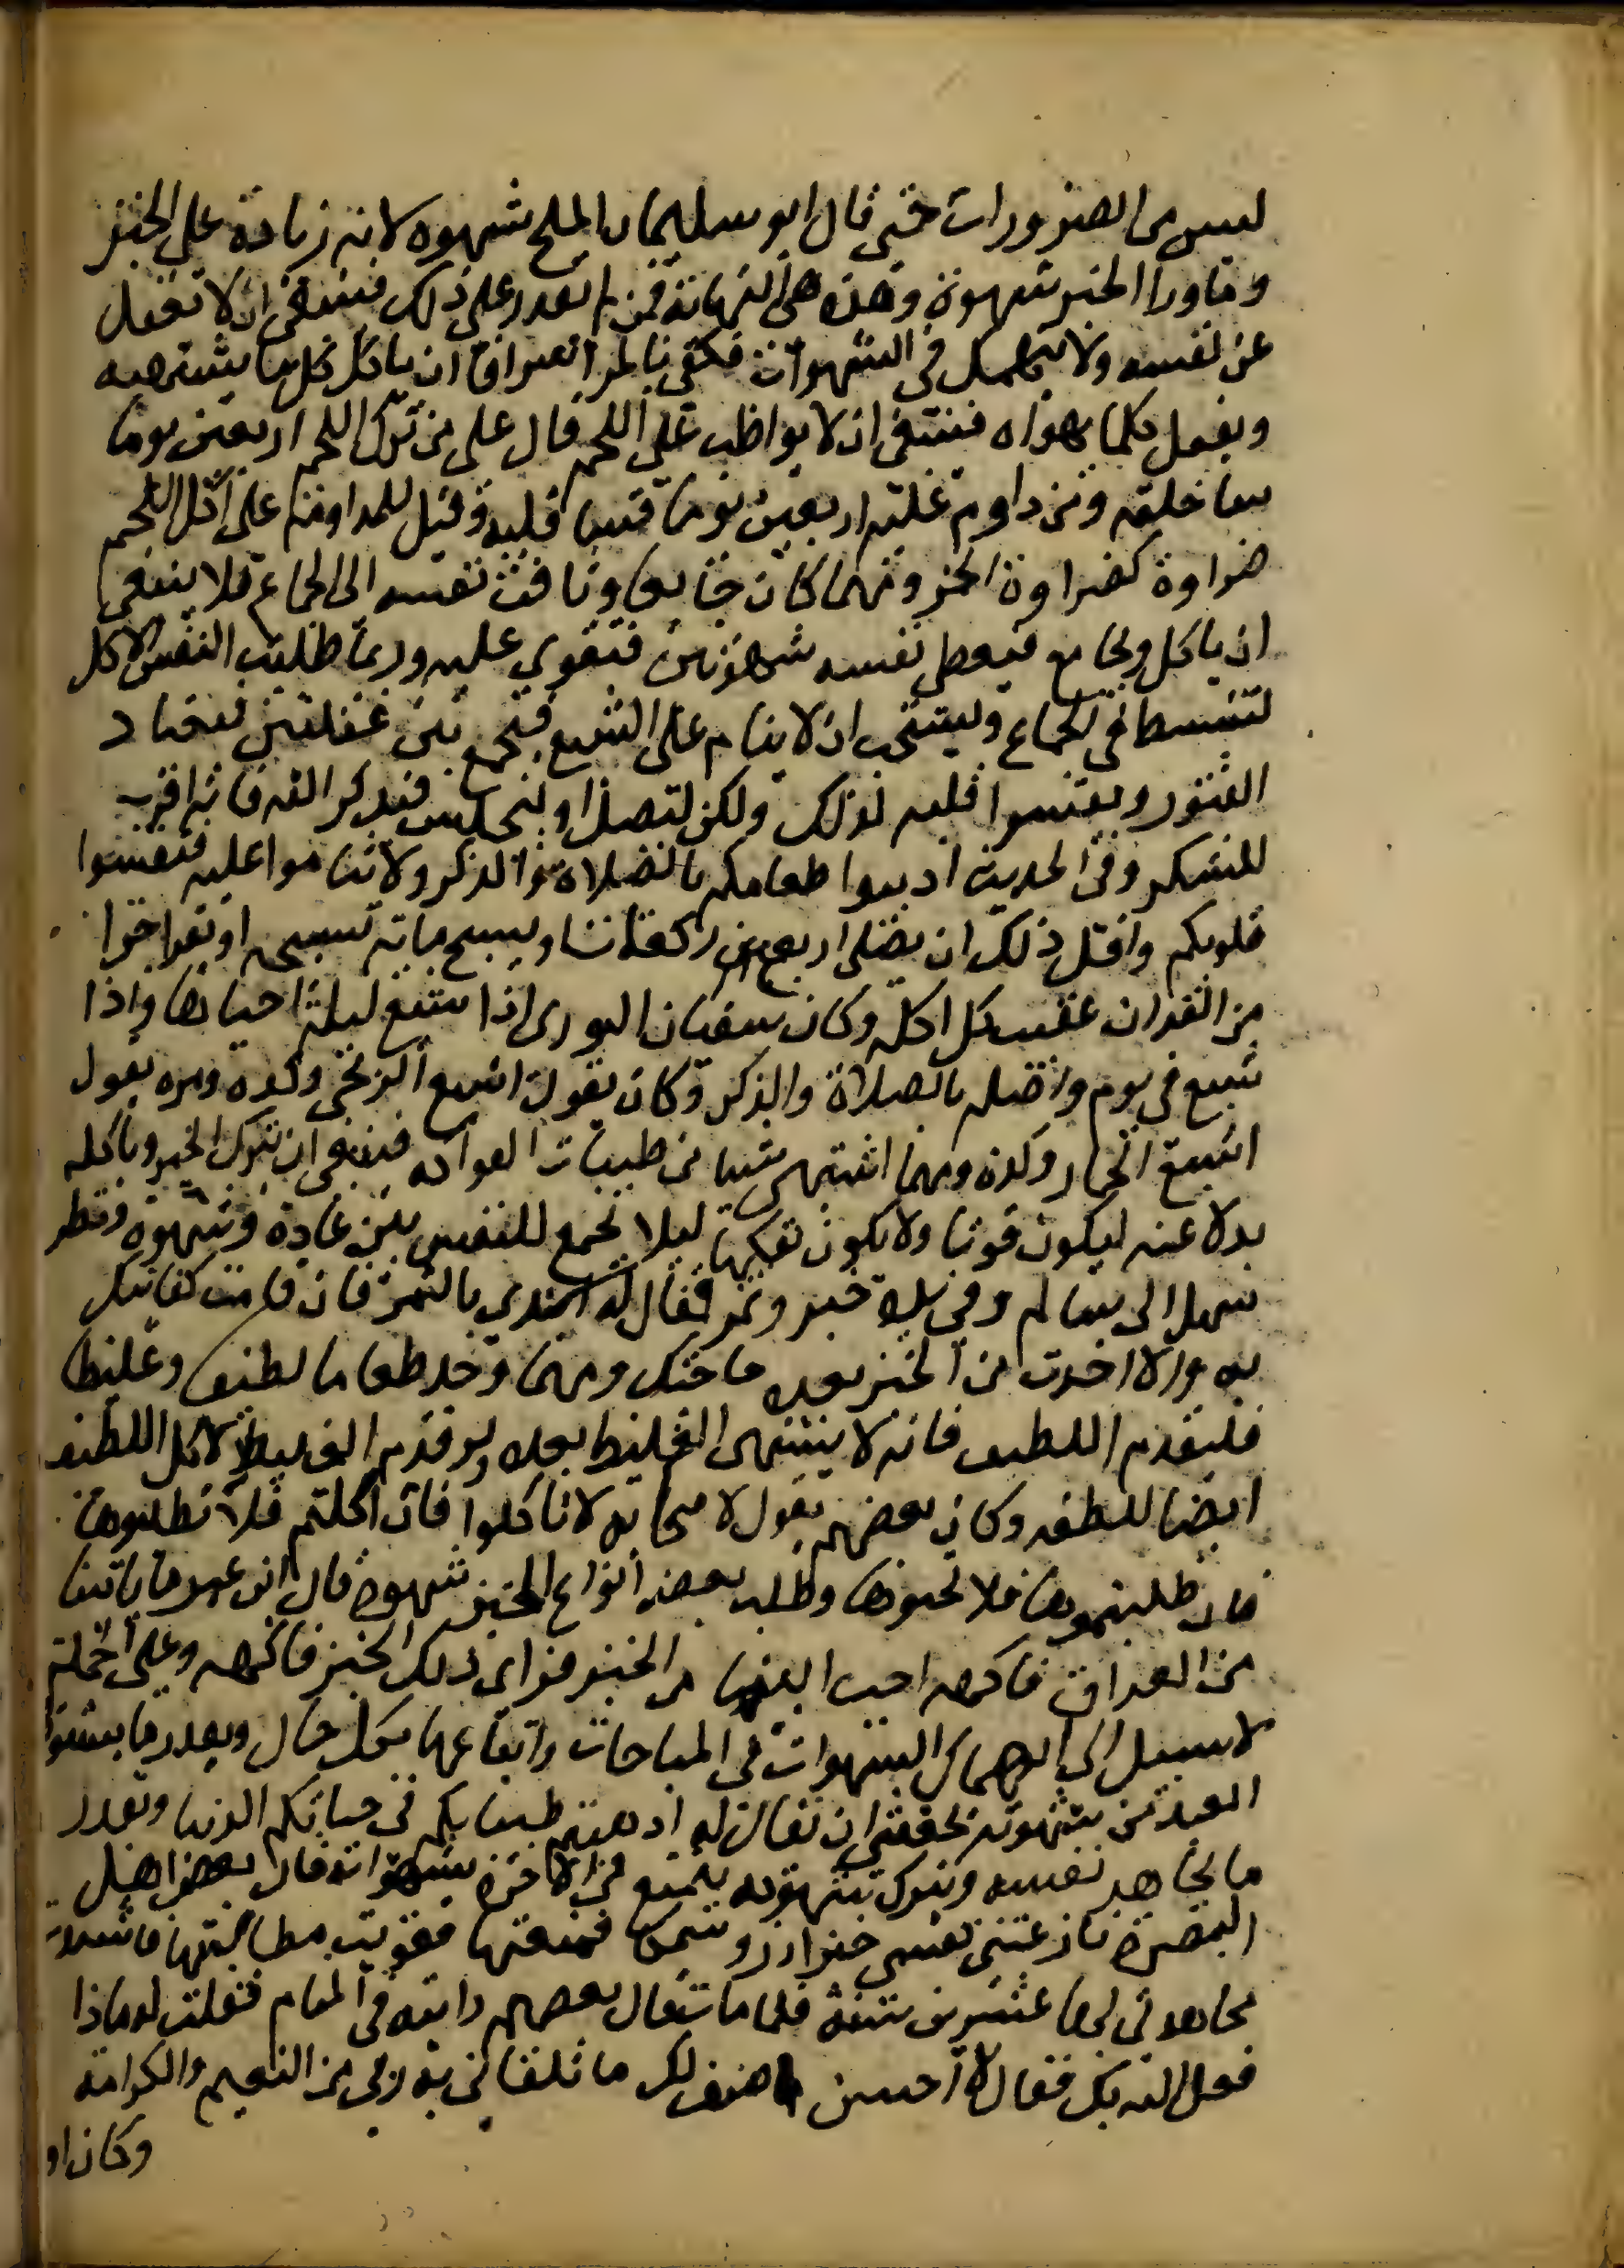 ليس من الضرورات حتى قال ابو سليمان الملح شهوه لانه زيادة على الخبز
وماورا الخبز شهوة وهذه هى النهاية فمن لم يقدر على ذلك فينبغى ان لا تغفل
عن نفسه ولا ينهمك فى الشهوات فكفى بالمرء اسرافا ان ياكل كل ما يشتهيه
ويفعل كلما يهواه فينبغى ان لا يواظب على اللحم قال على من ترك اللحم اربعين يوما
سا خلقه ومن داوم عليه اربعين يوما قسا قلبه وقيل للمداومة على اكل اللحم
ضراوة كضراوة الخمر ومهما كان جايعا وتاقت نفسه الى الجماع فلا ينبغى
ان ياكل ويجامع فيعطى نفسه شهوتين فتقوي عليه وربما طلبت النفس الاكل
لتنشط فى الجماع ويستحب ان لا ينام على الشبع فيجمع بين غفلتين فيعتاد
الفتور ويقسوا قلبه لذلك ولكن ليصل او ليجلس فيذكر الله فانه اقرب
للشكر وفى الحديث اذيبوا طعامكم بالصلاة والذكر ولا تناموا عليه فتقسوا
قلوبكم واقل ذلك ان يصلى اربع ركعات او يسبح ماية تسبيحه او يقرا جزا
من القران عقيب كل اكله وكان سفيان الثورى اذا شبع ليلة احياها واذا
شبع فى يوم واصله بالصلاة والذكر وكان يقول اشبع الزنجى وكده ومره يقول
اشبع الحمار وكده ومهما اشتهى شيا من طيبات الفواكه فينبغى ان يترك الخبز وياكله
بدلا عنه ليكون قوتا ولا يكون تفكها ليلا تجمع للنفس بين عادة وشهوة ونظر
سهل الى بن سالم وفى يده خبز وتمر فقال له ابتدى بالتمر فان قامت كفايتك
به والا اخذت من الخبز بعده حاجتك ومهما وجد طعاما لطيفا وغليظا
فليقدم اللطيف فانه لا يشتهى الغليظ بعده ولو قدم الغليظ لاكل اللطيف
ايضا للطفه وكان بعضهم يقول لاصحابه لا تاكلوا فان اكلتم فلا تطلبوها
فان طلبتموها فلا تحبوها وطلب بعض انواع الخبز شهوة قال ابن عمر ما ياتينا
من العراق فاكهه احب الينا من الخبز فراى ذلك الخبز فاكهه وعلى الجملة
لا سبيل الى اهمال الشهوات فى المباحات واتباعها بكل حال وبقدر ما يستوفى
العبد من شهوته يخشى ان يقال له اذهبتم طيباتكم فى حياتكم الدنيا وبقدر
ما يجاهد نفسه ويترك شهوته يتمتع فى الاخره بشهواته قال بعض اهل
البصرة نازعتنى نفسى خبز ارز وسمكا فمنعتها فقويت مطالبتها فاشتدت
مجاهدتى لها عشرين سنة فلما مات قال بعضهم رايته فى المنام فقلت له ماذا
فعل الله بك فقال لا احسن اصف لك ما تلقانى به ربى من النعيم والكرامة
وكان او